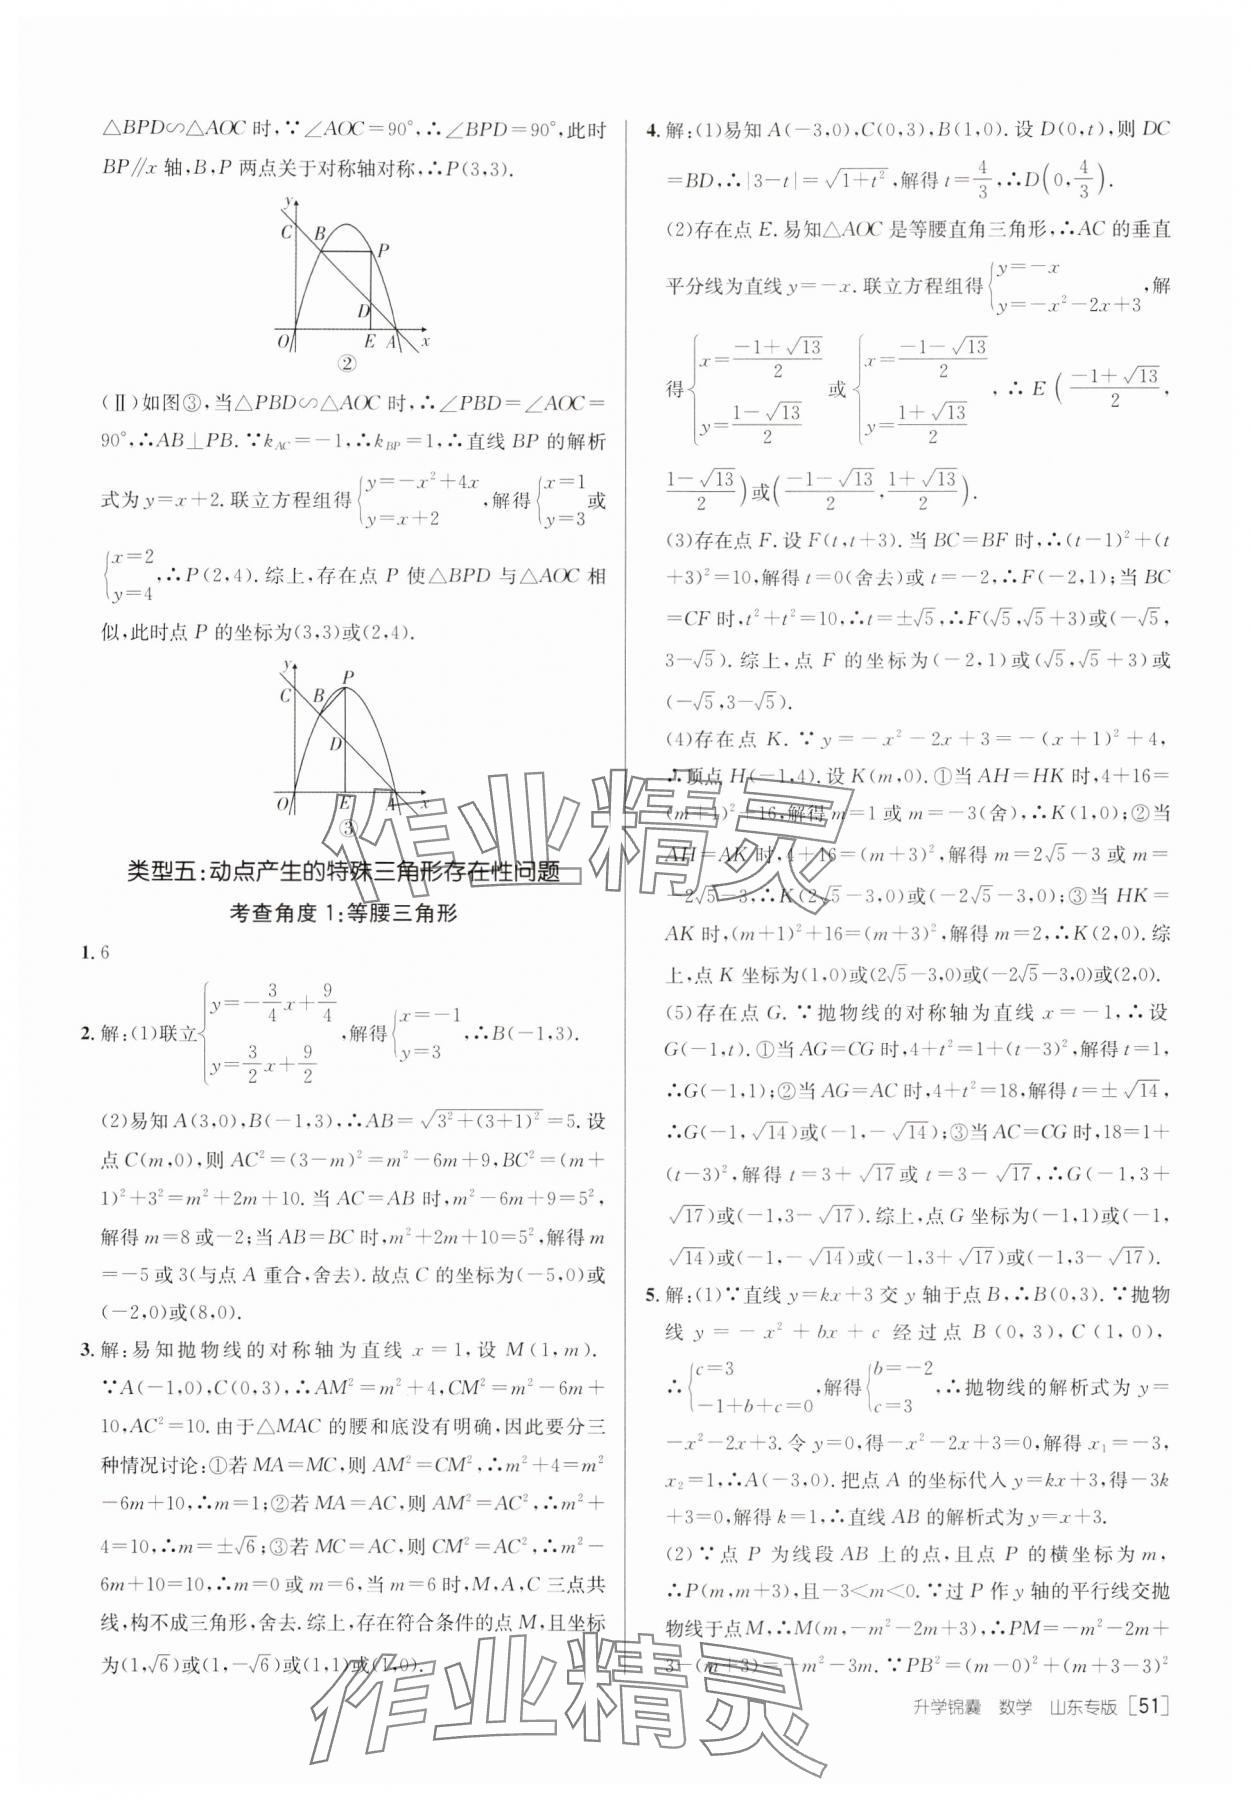 △BPD∽△AOC 时,∵∠AOC=90°,∴∠BPD=90°,此时
BP∥x 轴,B,P 两点关于对称轴对称,∴P(3,3).
y
C
B
P
D
O
E
A
x
②
(Ⅱ)如图③,当△PBD∽△AOC 时,∴∠PBD=∠AOC=
90°,∴AB⊥PB.∵k_{AC}=-1,∴k_{BP}=1,∴直线 BP 的解析
式为 y=x+2.联立方程组得{y=-x²+4x y=x+2,解得{x=1 y=3或
{x=2 y=4,∴P(2,4).综上,存在点 P 使△BPD 与△AOC 相
似,此时点 P 的坐标为(3,3)或(2,4).
y
C
B
P
D
O
E
A
x
③
类型五:动点产生的特殊三角形存在性问题
考查角度 1:等腰三角形
1. 6
2. 解:(1)联立{y=-3/4x+9/4 y=3/2x+9/2,解得{x=-1 y=3,∴B(-1,3).
(2)易知 A(3,0),B(-1,3),∴AB=√(3²+(3+1)²)=5.设
点 C(m,0),则 AC²=(3-m)²=m²-6m+9,BC²=(m+
1)²+3²=m²+2m+10.当 AC=AB 时,m²-6m+9=5²,
解得 m=8 或-2;当 AB=BC 时,m²+2m+10=5²,解得 m
=-5 或 3(与点 A 重合,舍去).故点 C 的坐标为(-5,0)或
(-2,0)或(8,0).
3. 解:易知抛物线的对称轴为直线 x=1,设 M(1,m).
∵A(-1,0),C(0,3),∴AM²=m²+4,CM²=m²-6m+
10,AC²=10.由于△MAC 的腰和底没有明确,因此要分三
种情况讨论:①若 MA=MC,则 AM²=CM²,∴m²+4=m²
-6m+10,∴m=1;②若 MA=AC,则 AM²=AC²,∴m²+
4=10,∴m=±√6;③若 MC=AC,则 CM²=AC²,∴m²-
6m+10=10,∴m=0 或 m=6,当 m=6 时,M,A,C 三点共
线,构不成三角形,舍去.综上,存在符合条件的点 M,且坐标
为(1,√6)或(1,-√6)或(1,1)或(1,0).
4. 解:(1)易知 A(-3,0),C(0,3),B(1,0).设 D(0,t),则 DC
=BD,∴|3-t|=√(1+t²),解得 t=4/3,∴D(0,4/3).
(2)存在点 E.易知△AOC 是等腰直角三角形,∴AC 的垂直
平分线为直线 y=-x.联立方程组得{y=-x y=-x²-2x+3,解
得{x=(-1+√13)/2 y=(1-√13)/2或{x=(-1-√13)/2 y=(1+√13)/2,∴E((-1+√13)/2,
(1-√13)/2)或((-1-√13)/2,(1+√13)/2).
(3)存在点 F.设 F(t,t+3).当 BC=BF 时,∴(t-1)²+(t
+3)²=10,解得 t=0(舍去)或 t=-2,∴F(-2,1);当 BC
=CF 时,t²+t²=10,∴t=±√5,∴F(√5,√5+3)或(-√5,
3-√5).综上,点 F 的坐标为(-2,1)或(√5,√5+3)或
(-√5,3-√5).
(4)存在点 K.∵y=-x²-2x+3=-(x+1)²+4,
∴顶点 H(-1,4).设 K(m,0).①当 AH=HK 时,4+16=
(m+1)²+16,解得 m=1 或 m=-3(舍),∴K(1,0);②当
AH=AK 时,4+16=(m+3)²,解得 m=2√5-3 或 m=
-2√5-3,∴K(2√5-3,0)或(-2√5-3,0);③当 HK=
AK 时,(m+1)²+16=(m+3)²,解得 m=2,∴K(2,0).综
上,点 K 坐标为(1,0)或(2√5-3,0)或(-2√5-3,0)或(2,0).
(5)存在点 G.∵抛物线的对称轴为直线 x=-1,∴设
G(-1,t).①当 AG=CG 时,4+t²=1+(t-3)²,解得 t=1,
∴G(-1,1);②当 AG=AC 时,4+t²=18,解得 t=±√14,
∴G(-1,√14)或(-1,-√14);③当 AC=CG 时,18=1+
(t-3)²,解得 t=3+√17或 t=3-√17,∴G(-1,3+
√17)或(-1,3-√17).综上,点 G 坐标为(-1,1)或(-1,
√14)或(-1,-√14)或(-1,3+√17)或(-1,3-√17).
5. 解:(1)∵直线 y=kx+3 交 y 轴于点 B,∴B(0,3).∵抛物
线 y=-x²+bx+c 经过点 B(0,3),C(1,0),
∴{c=3 -1+b+c=0,解得{b=-2 c=3,∴抛物线的解析式为 y=
-x²-2x+3.令 y=0,得-x²-2x+3=0,解得 x₁=-3,
x₂=1,∴A(-3,0).把点 A 的坐标代入 y=kx+3,得-3k
+3=0,解得 k=1,∴直线 AB 的解析式为 y=x+3.
(2)∵点 P 为线段 AB 上的点,且点 P 的横坐标为 m,
∴P(m,m+3),且-3<m<0.∵过 P 作 y 轴的平行线交抛
物线于点 M,∴M(m,-m²-2m+3),∴PM=-m²-2m+
3-(m+3)=-m²-3m.∵PB²=(m-0)²+(m+3-3)²
升学锦囊 数学 山东专版[51]
作业精灵
作业精灵